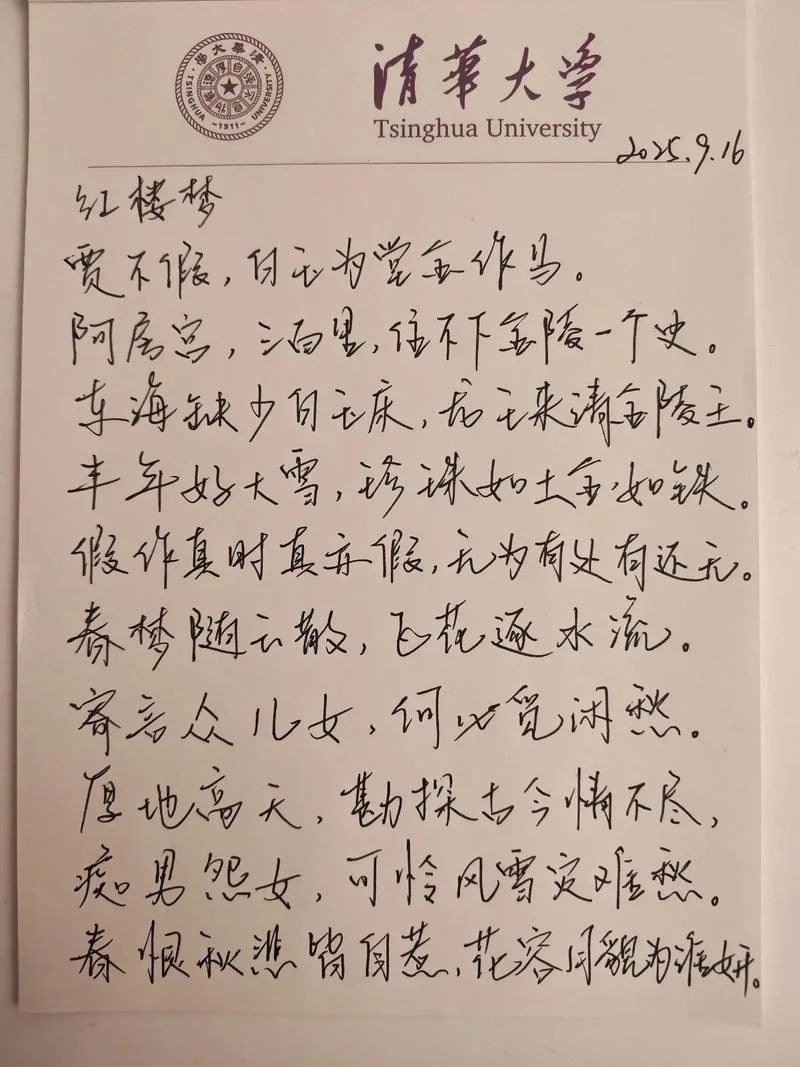 清華大學
TSINGHUA UNIVERSITY
1911
清華大学
Tsinghua University
2025.9.16
红楼梦
贾不假，白玉为堂金作马。
阿房宫，三百里，住不下金陵一个史。
东海缺少白玉床，龙王来请金陵王。
丰年好大雪，珍珠如土金如铁。
假作真时真亦假，无为有处有还无。
春梦随云散，飞花逐水流。
寄言众儿女，何必觅闲愁。
厚地高天，勘探古今情不尽，
痴男怨女，可怜风雪灾难愁。
春恨秋悲皆自惹，花容月貌为谁妍。